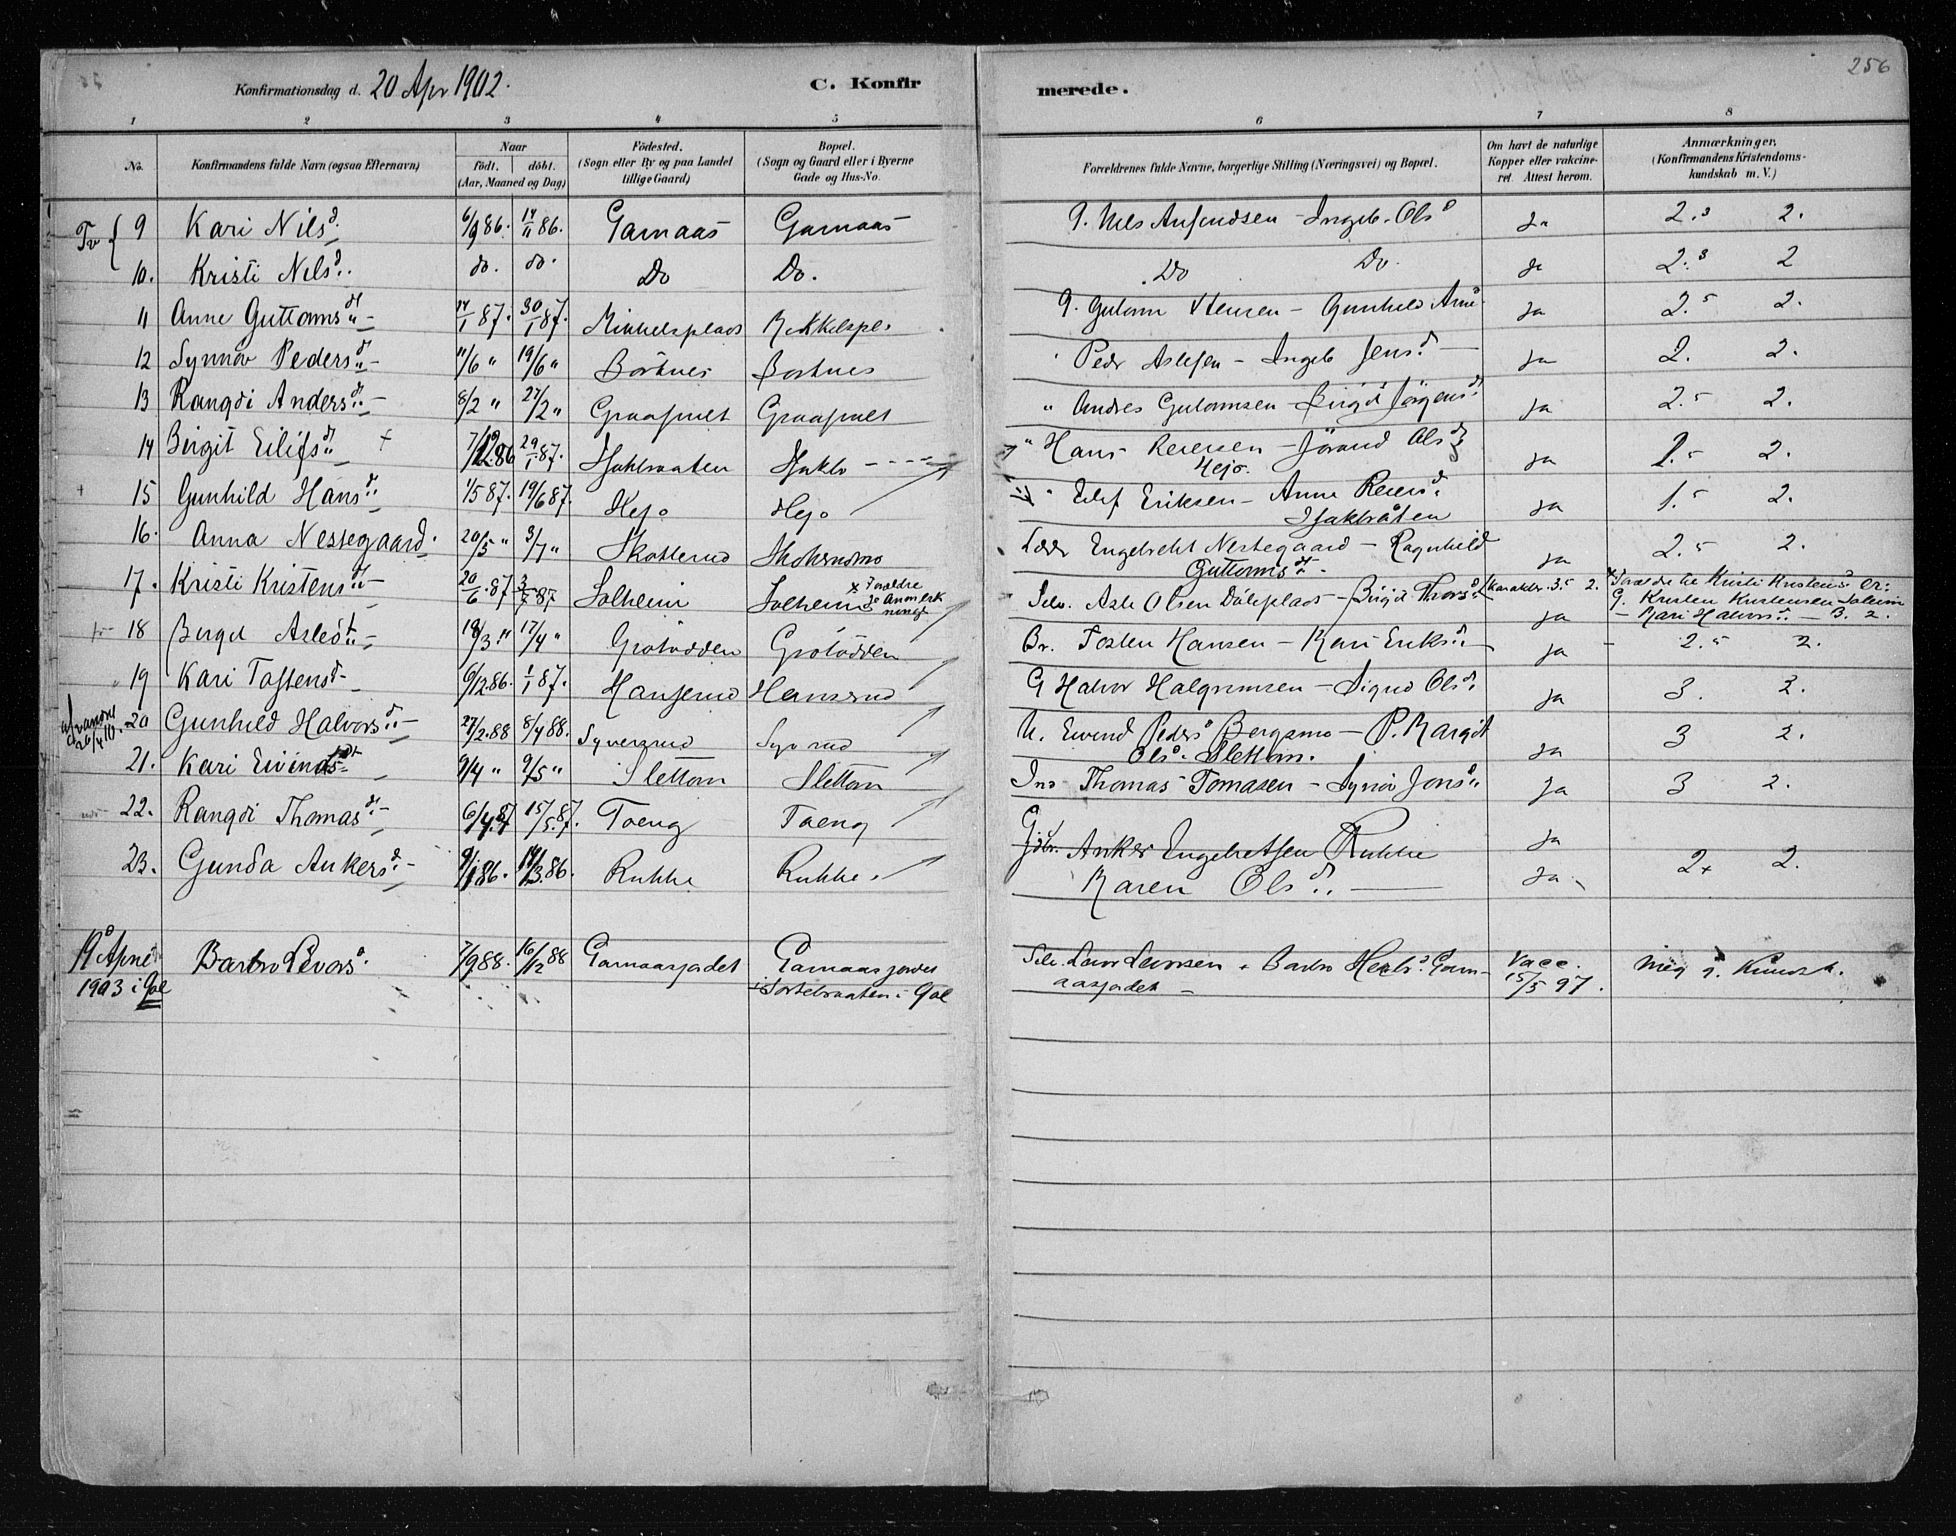 256
Konfirmationsdag d. 20 Apr 1902.
C. Konfirmerede.
1 2 3 4 5 6 7 8
No. Konfirmandens fulde Navn (ogsaa Efternavn) Naar født. døbt. (Aar, Maaned og Dag) Födested. (Sogn eller By og paa Landet tillige Gaard) Bopæl. (Sogn og Gaard eller i Byerne Gade og Hus-No. Forældrenes fulde Navne, borgerlige Stilling (Næringsvei) og Bopæl. Om havt de naturlige Kopper eller vaccineret. Attest herom. Anmærkninger. (Konfirmandens Kristendomskundskab m. V.)
Tv { 9 Kari Nilsd. 6/9 86. 14/11 86. Garnaas Garnaas G. Nils Anfindsen - Ingeb. Olsd ja 2.3 2.
10. Kristi Nilsd. do. do. Do Do. Do Do. ja 2.3 2
11 Anne Guttormsd. 14/1 87. 30/1 87. Mikkelsplads Mikkelspl. G. Gutorm - Gunhild ja 2.5 2.
12 Synnøv Pedersd. 11/6 " 19/6 " Børtnes Bortnes Peder Aslesen - Ingeb Jensd. ja 2. 2.
13 Rangdi Andersd. 8/2 " 27/2 " Graafjnelt Graafjnelt " Andres Gutormsen - Birgit Jörgensd. ja 2.5 2.
14 Birgit Eilifsd. + 7/12 86 29/1 87. Isaklo - - - - " Hans Reiersen - Jørand Olsd. Hejo. ja 2.5 2.
15 Gunhild Hansd. 1/5 87. 19/6 87. Hejo Hejo " Eilif Eriksen - Anne Reiersd. Isakbråten ja 1.5 2.
16. Anna Nessegaard. 20/5 " 3/7 " Skotterud Engebreht Nestegaard - Ragnhild Guttormsd. ja 2.5 2.
17. Kristi Kristensd. 20/6 87 3/7 87 Solheim Solheim x Forældre se Anmerkning Selv. Asle Olsen Döleplads - Birgit Thorsd. (Karakter. 3.5 2. ja x Forældre til Kristi Kristensd. er: G. Kristen Kristensen Solheim - Mari Halvorsd. - B. 2.
18 Birgit Aslesd. 18/3 " 17/4 " Grotødden Grotødden Br. Tosten Hansen - Kari Eriksd. ja 2.5 2.
19 Kari Tostensd. 6/12 86. 1/1 87. Hanserud Hanserud G Halvor Halgrimsen - Sigrid Olsd. ja 3. 2.
26/4 10. 20 Gunhild Halvorsd. 27/2 88 8/4 88. Syversrud Syvrud U. Eivind Peders Bergsmo - P. Margit Olsd. Slettom. ja 3 2.
21. Kari Eivindsdt 9/4 " 9/5 " Slettom Slettom Ins Thomas Tomasen - Synøv Jonsd. ja 3 2.
22. Rangdi Thomasd. 6/4 87 15/5 87. Toeng Toeng ja
23. Gunda Ankersd. 9/1 86. 14/3 86. Rukke Rukke. Gdbr. Anker Engebretsen Rukke Karen Olsd. ja 2+ 2.
19d April 1903 i Gol Barbro Levorsd. 7/9 88. 16/12 88 Garnaasjordet Garnaasjordet i Gol Selv. Levor Levorsen + Barbro Herbr.d Garnaasjordet Vacc. 15/5 97. meg. g. Kundsk.